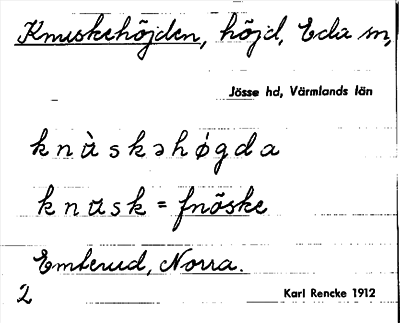 Knuskehöjden, höjd, Eda sn,
Jösse hd, Värmlands län
knùskəhøgda
knusk = fnöske
Emterud, Norra.
2
Karl Rencke 1912